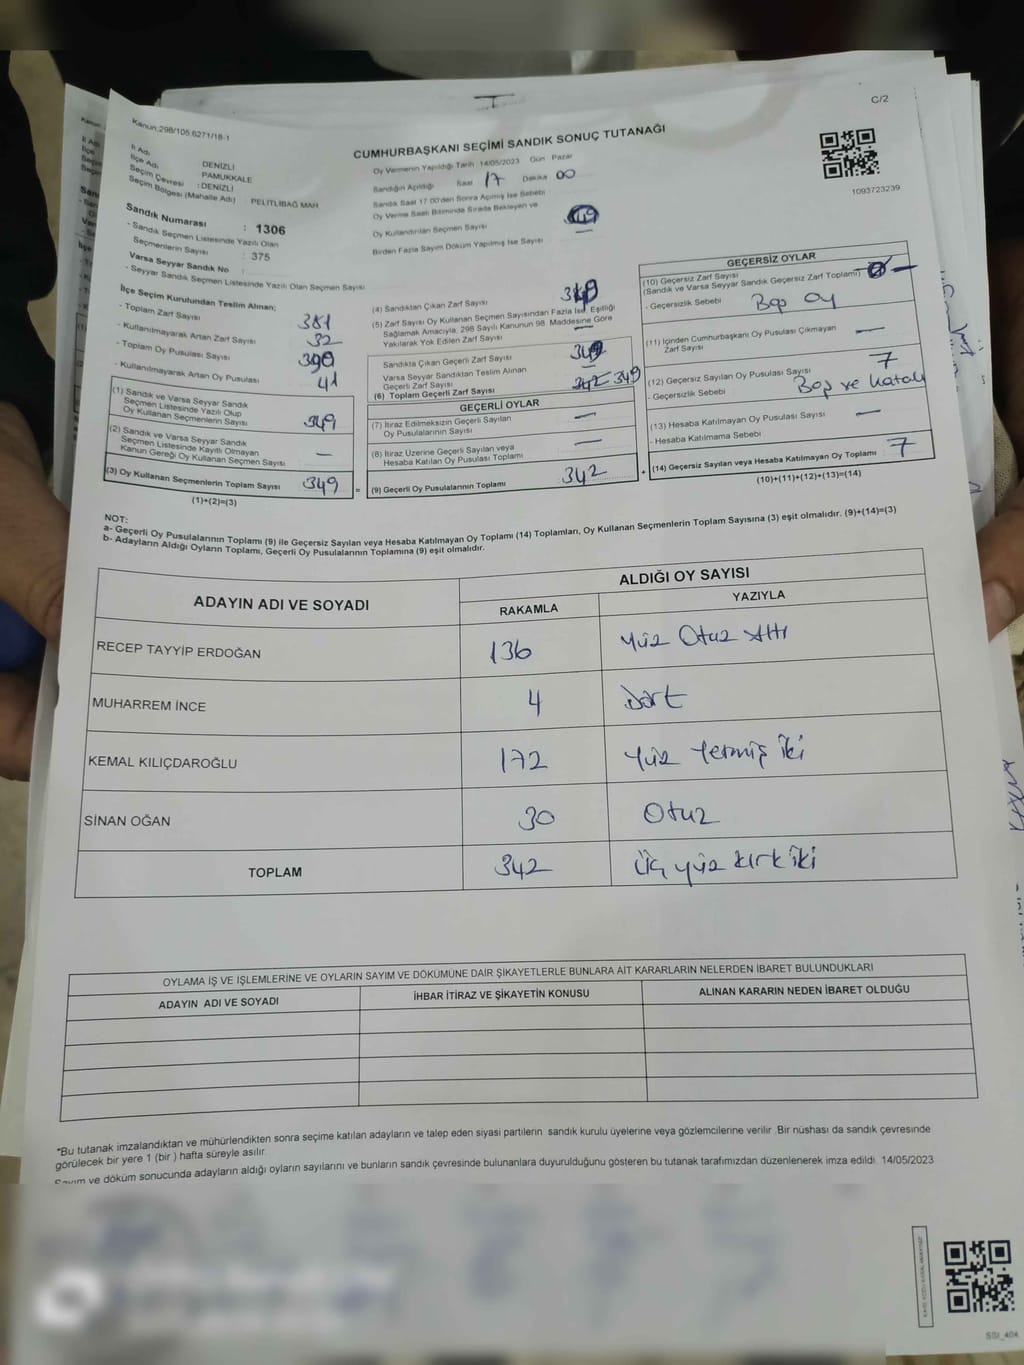 C/2
Kanun:298/105,6271/18-1
CUMHURBAŞKANI SEÇİMİ SANDIK SONUÇ TUTANAĞI
1093723239
İl Adı DENİZLİ
İlçe Adı PAMUKKALE
Seçim Çevresi : DENİZLİ
Seçim Bölgesi (Mahalle Adı) PELİTLİBAĞ MAH.
Sandık Numarası : 1306
- Sandık Seçmen Listesinde Yazılı Olan
Seçmenlerin Sayısı : 375
Varsa Seyyar Sandık No :
- Seyyar Sandık Seçmen Listesinde Yazılı Olan Seçmen Sayısı
Oy Vermenin Yapıldığı Tarih 14/05/2023 Gün Pazar
Sandığın Açıldığı Saat 17 Dakika 00
Sandık Saat 17:00'den Sonra Açılmış İse Sebebi
Oy Verme Saati Bitiminde Sırada Bekleyen ve
Oy Kullandırılan Seçmen Sayısı
Birden Fazla Sayım Döküm Yapılmış İse Sayısı —
İlçe Seçim Kurulundan Teslim Alınan:
- Toplam Zarf Sayısı 381
- Kullanılmayarak Artan Zarf Sayısı 32
- Toplam Oy Pusulası Sayısı 390
- Kullanılmayarak Artan Oy Pusulası 41
(1) Sandık ve Varsa Seyyar Sandık
Seçmen Listesinde Yazılı Olup
Oy Kullanan Seçmenlerin Sayısı 349
(2) Sandık ve Varsa Seyyar Sandık
Seçmen Listesinde Kayıtlı Olmayan
Kanun Gereği Oy Kullanan Seçmen Sayısı —
(3) Oy Kullanan Seçmenlerin Toplam Sayısı 349
(1)+(2)=(3)
(4) Sandıktan Çıkan Zarf Sayısı 349
(5) Zarf Sayısı Oy Kullanan Seçmen Sayısından Fazla İse, Eşitliği
Sağlamak Amacıyla, 298 Sayılı Kanunun 98. Maddesine Göre
Yakılarak Yok Edilen Zarf Sayısı —
Sandıkta Çıkan Geçerli Zarf Sayısı 349
Varsa Seyyar Sandıktan Teslim Alınan
Geçerli Zarf Sayısı —
(6) Toplam Geçerli Zarf Sayısı 342 349
GEÇERLİ OYLAR
(7) İtiraz Edilmeksizin Geçerli Sayılan
Oy Pusulalarının Sayısı —
(8) İtiraz Üzerine Geçerli Sayılan veya
Hesaba Katılan Oy Pusulası Toplamı —
= (9) Geçerli Oy Pusulalarının Toplamı 342 +
GEÇERSİZ OYLAR
(10) Geçersiz Zarf Sayısı
(Sandık ve Varsa Seyyar Sandık Geçersiz Zarf Toplamı) 0 —
- Geçersizlik Sebebi Boş oy
(11) İçinden Cumhurbaşkanı Oy Pusulası Çıkmayan
Zarf Sayısı —
(12) Geçersiz Sayılan Oy Pusulası Sayısı 7
- Geçersizlik Sebebi Boş ve Hatalı
(13) Hesaba Katılmayan Oy Pusulası Sayısı —
- Hesaba Katılmama Sebebi
(14) Geçersiz Sayılan veya Hesaba Katılmayan Oy Toplamı 7
(10)+(11)+(12)+(13)=(14)
NOT:
a- Geçerli Oy Pusulasının Toplamı (9) ile Geçersiz Sayılan veya Hesaba Katılmayan Oy Toplamı (14) Toplamları, Oy Kullanan Seçmenlerin Toplam Sayısına (3) eşit olmalıdır. (9)+(14)=(3)
b- Adayların Aldığı Oyların Toplamı, Geçerli Oy Pusulalarının Toplamına (9) eşit olmalıdır.
ADAYIN ADI VE SOYADI ALDIĞI OY SAYISI
RAKAMLA YAZIYLA
RECEP TAYYİP ERDOĞAN 136 Yüz Otuz Altı
MUHARREM İNCE 4 Dört
KEMAL KILIÇDAROĞLU 172 Yüz Yetmiş iki
SİNAN OĞAN 30 Otuz
TOPLAM 342 Üç yüz kırk iki
OYLAMA İŞ VE İŞLEMLERİNE VE OYLARIN SAYIM VE DÖKÜMÜNE DAİR ŞİKAYETLERLE BUNLARA AİT KARARLARIN NELERDEN İBARET BULUNDUKLARI
ADAYIN ADI VE SOYADI İHBAR İTİRAZ VE ŞİKAYETİN KONUSU ALINAN KARARIN NEDEN İBARET OLDUĞU
*Bu tutanak imzalandıktan ve mühürlendikten sonra seçime katılan adayların ve talep eden siyasi partilerin sandık kurulu üyelerine veya gözlemcilerine verilir. Bir nüshası da sandık çevresinde
görülecek bir yere 1 (bir) hafta süreyle asılır.
Sayım ve döküm sonucunda adayların aldığı oyların sayılarını ve bunların sandık çevresinde bulunanlara duyurulduğunu gösteren bu tutanak tarafımızdan düzenlenerek imza edildi. 14/05/2023
SSI_404